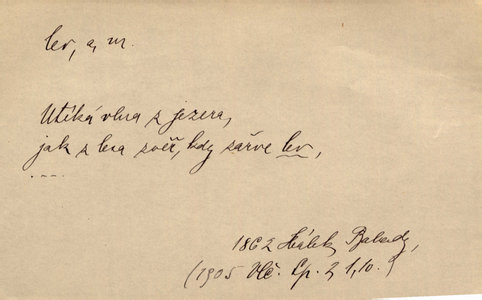 lev, a, m.
Utíká vlna z jezera,
jak z lesa zvěř, kdy zařve lev,
....
1862 Hálek, Balady,
(1905 Vlč. Sp. 2, 1, 10.)